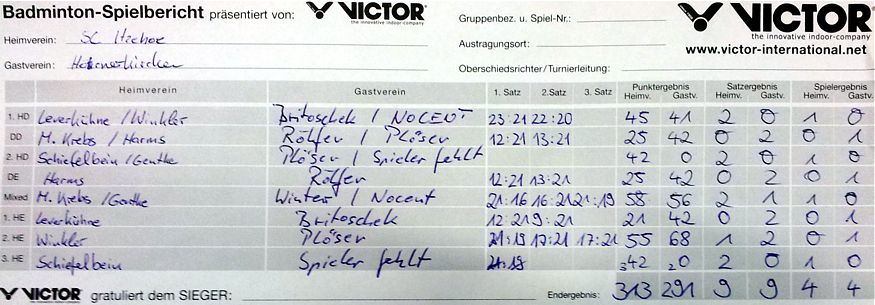 Badminton-Spielbericht präsentiert von: VICTOR the innovative indoor-company Gruppenbez. u. Spiel-Nr.: VICTOR the innovative indoor-company
Heimverein: SC Itzehoe Austragungsort: www.victor-international.net
Gastverein: Oberschiedsrichter/Turnierleitung:
Heimverein Gastverein 1. Satz 2. Satz 3. Satz Punktergebnis Heimv. Gastv. Satzergebnis Heimv. Gastv. Spielergebnis Heimv. Gastv.
1. HD Leverkühne / Winkler Britoschek / Nocent 23:21 22:20 45 41 2 0 1 0
DD M. Krebs / Harms Rölfer / Plöser 12:21 13:21 25 42 0 2 0 1
2. HD Schiefelbein / Plöser / Spieler fehlt 42 0 2 0 1 0
DE Harms Rölfer 12:21 13:21 25 42 0 2 0 1
Mixed M. Krebs / Winter / Nocent 21:16 16:21 21:19 58 56 2 1 1 0
1. HE Leverkühne Britoschek 12:21 9:21 21 42 0 2 0 1
2. HE Winkler Plöser 21:19 17:21 17:21 55 68 1 2 0 1
3. HE Schiefelbein Spieler fehlt 42 0 2 0 1 0
VICTOR gratuliert dem SIEGER: Endergebnis: 313 291 9 9 4 4